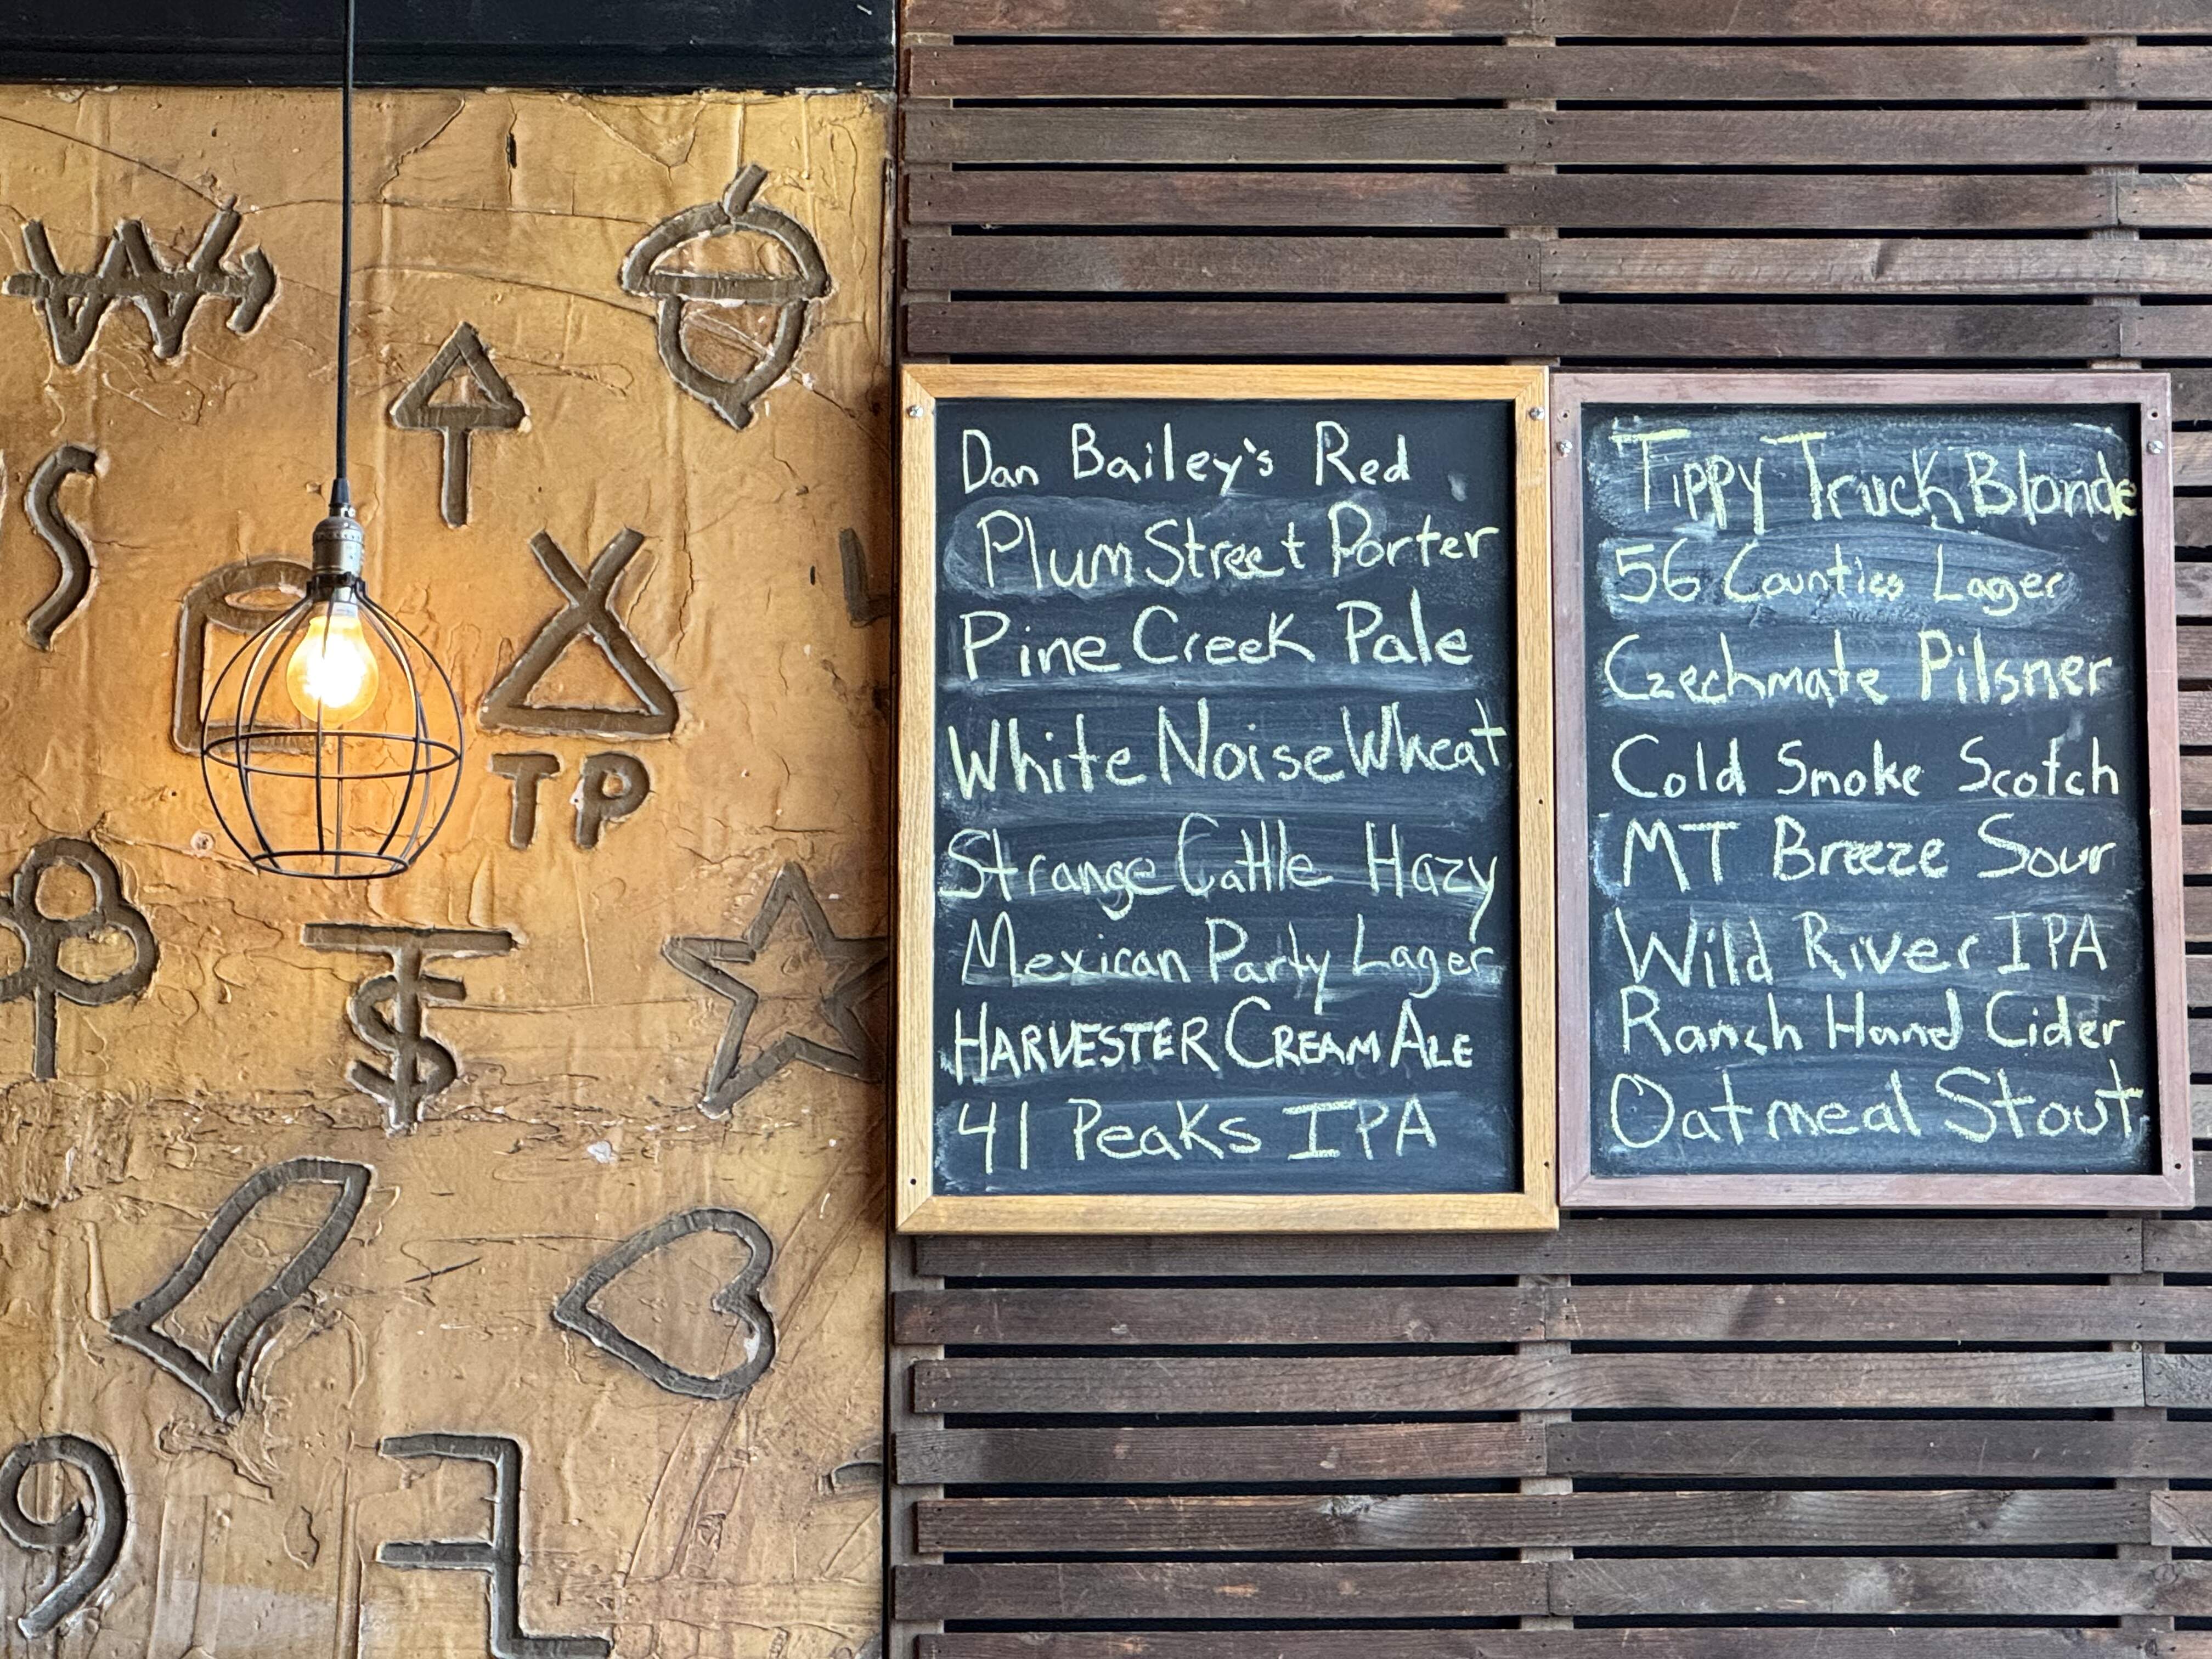 W
S
TP
T$
9
Dan Bailey's Red
Plum Street Porter
Pine Creek Pale
White Noise Wheat
Strange Cattle Hazy
Mexican Party Lager
HARVESTER CREAM ALE
41 Peaks IPA
Tippy Truck Blonde
56 Counties Lager
Czechmate Pilsner
Cold Smoke Scotch
MT Breeze Sour
Wild River IPA
Ranch Hand Cider
Oatmeal Stout